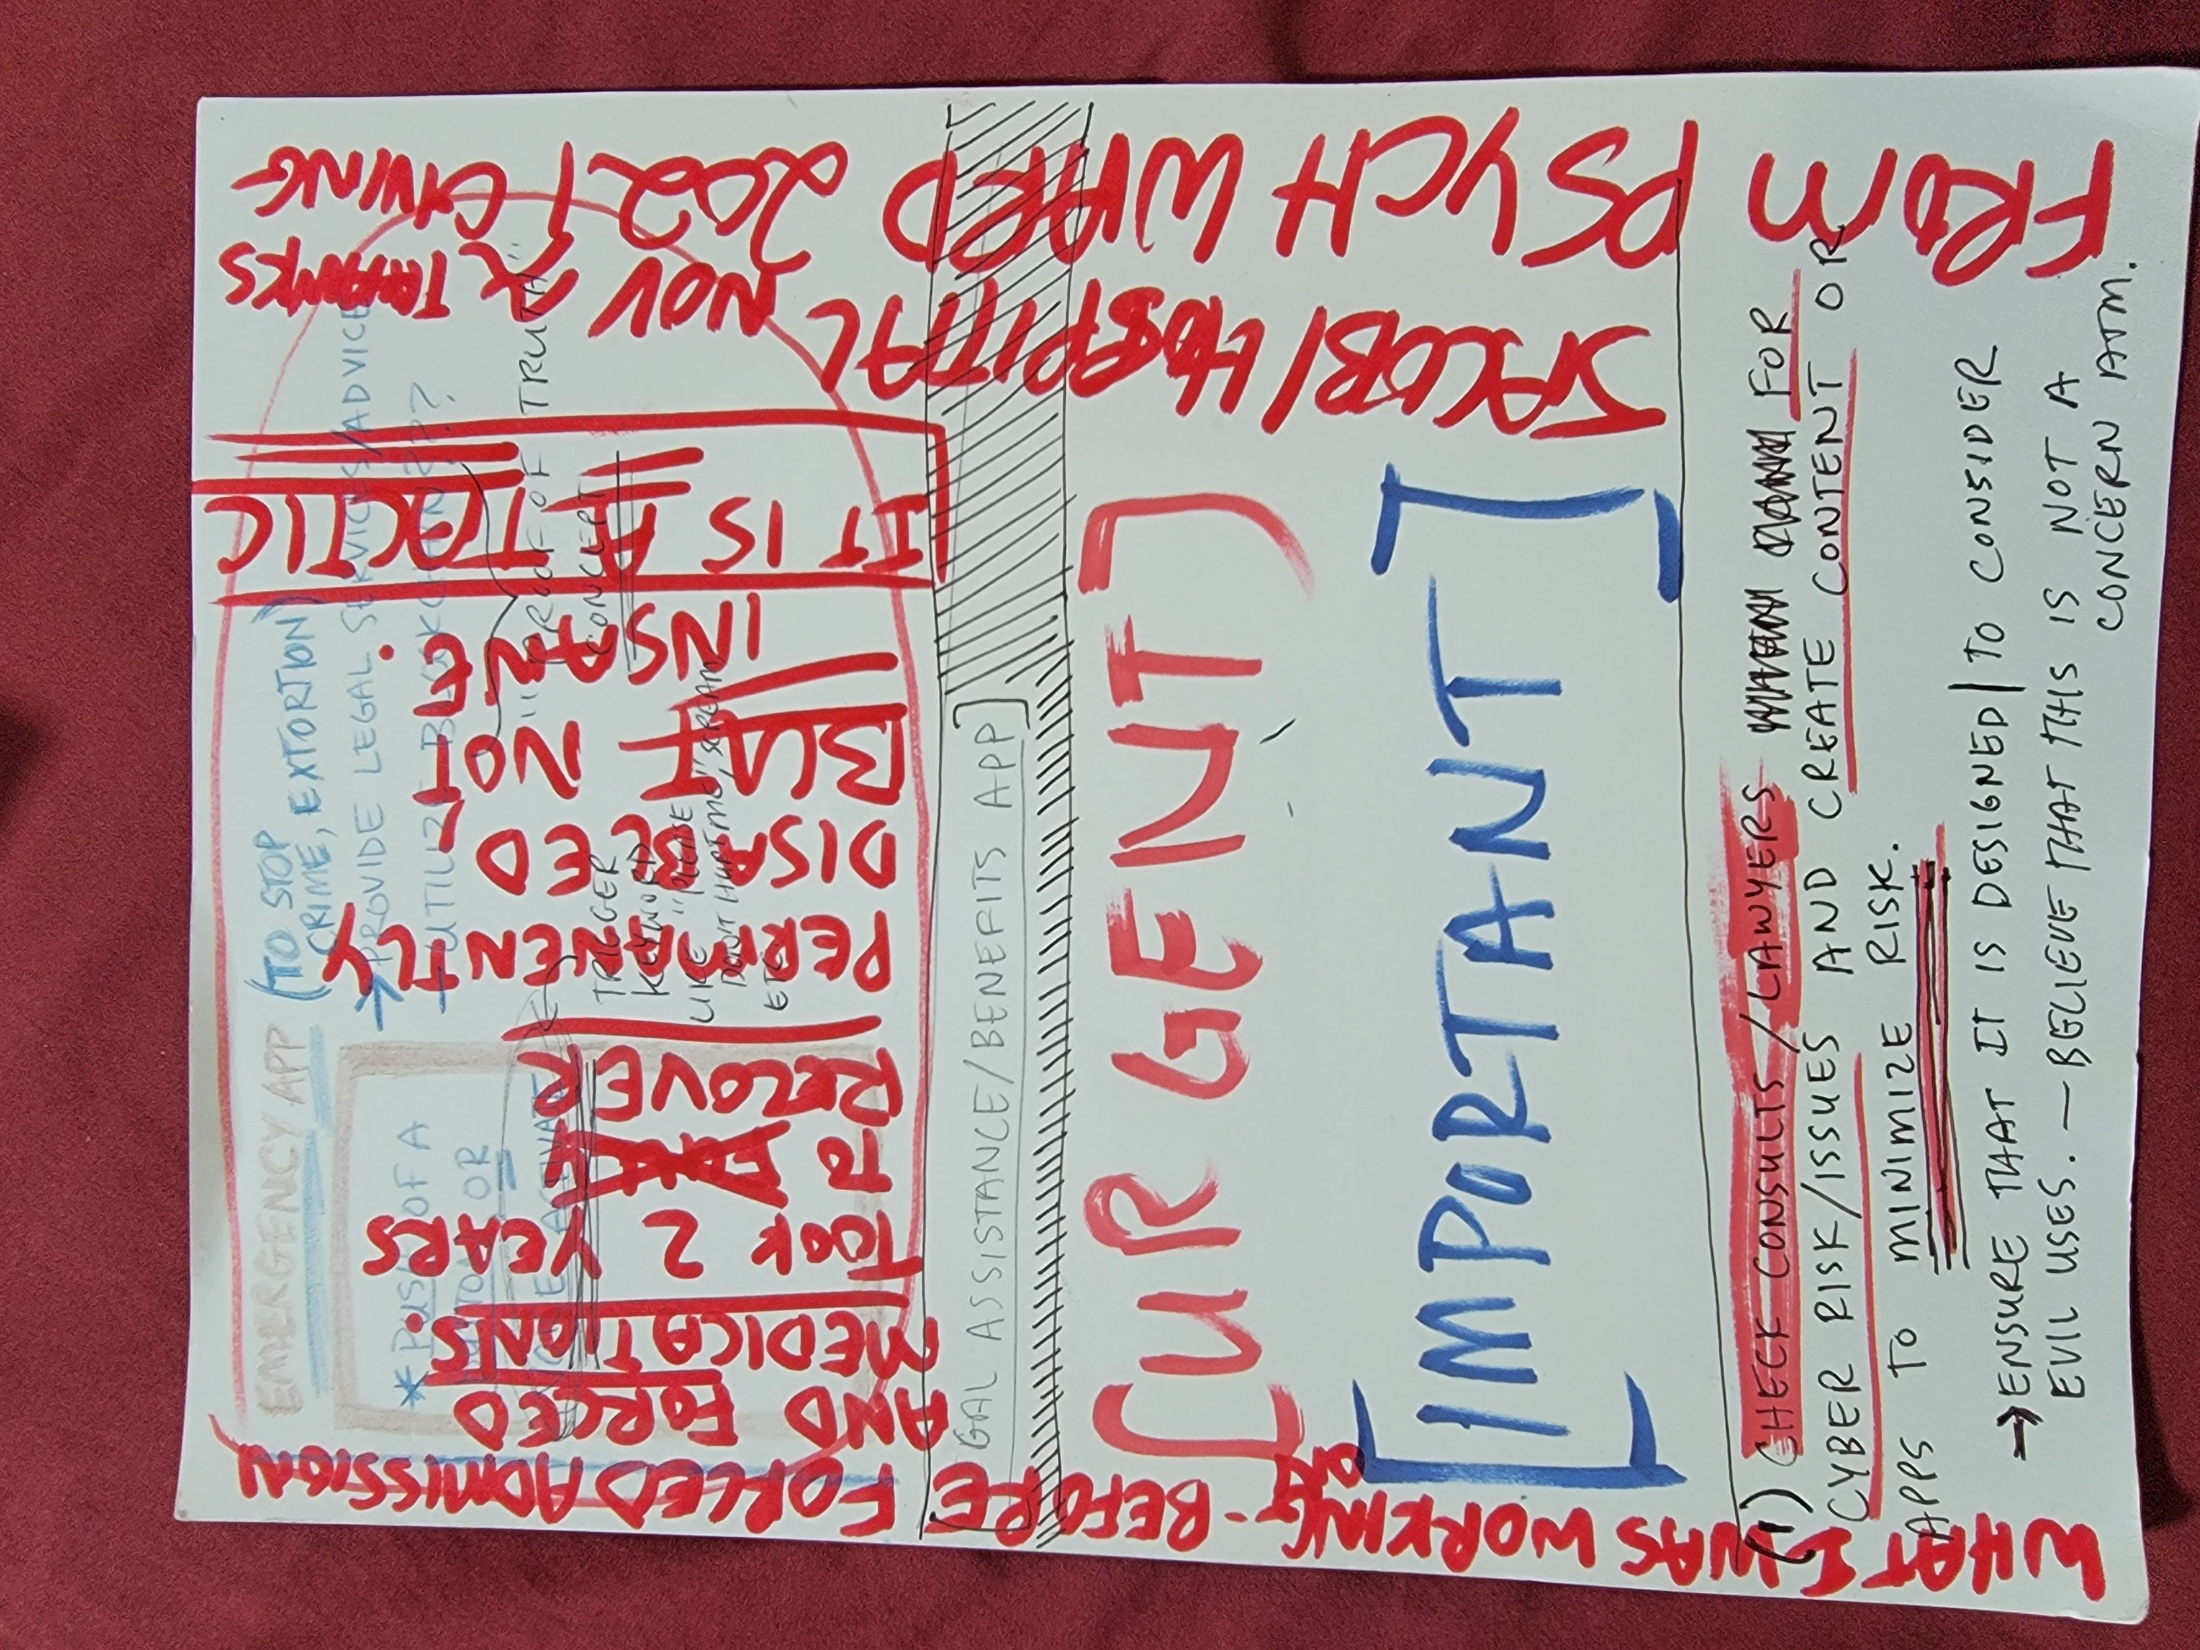 EMERGENCY APP
(TO STOP
CRIME, EXTORTION)
→ PROVIDE LEGAL SERVICES/ADVICE
- UTILIZE BLOCKCHAIN???
"PROOF OF TRUTH"
CONCEPT
* PUSH OF A
BUTTON OR
VOICE ACTIVATE
TRIGGER
KEYWORD
LIKE "PLEASE
DON'T HURT ME", SCREAM
ETC.
GAL ASSISTANCE/BENEFITS APP]
[URGENT]
[IMPORTANT]
(1) CHECK CONSULTS/LAWYERS FOR
CYBER RISK/ISSUES AND CREATE CONTENT OR
APPS TO MINIMIZE RISK.
→ ENSURE THAT IT IS DESIGNED | TO CONSIDER
EVIL USES. — BELIEVE THAT THIS IS NOT A
CONCERN ATM.
WHAT I WAS WORKING - BEFORE FORCED ADMISSION
ON
AND FORCED
MEDICATIONS.
TOOK 2 YEARS
TO
RECOVER
PERMANENTLY
DISABLED!
BUT NOT
INSANE.
IT IS A TOCTIC
JACOBI HOSPITAL NOV 2 THANKS
FROM PSYCH WARD 2021 GIVING